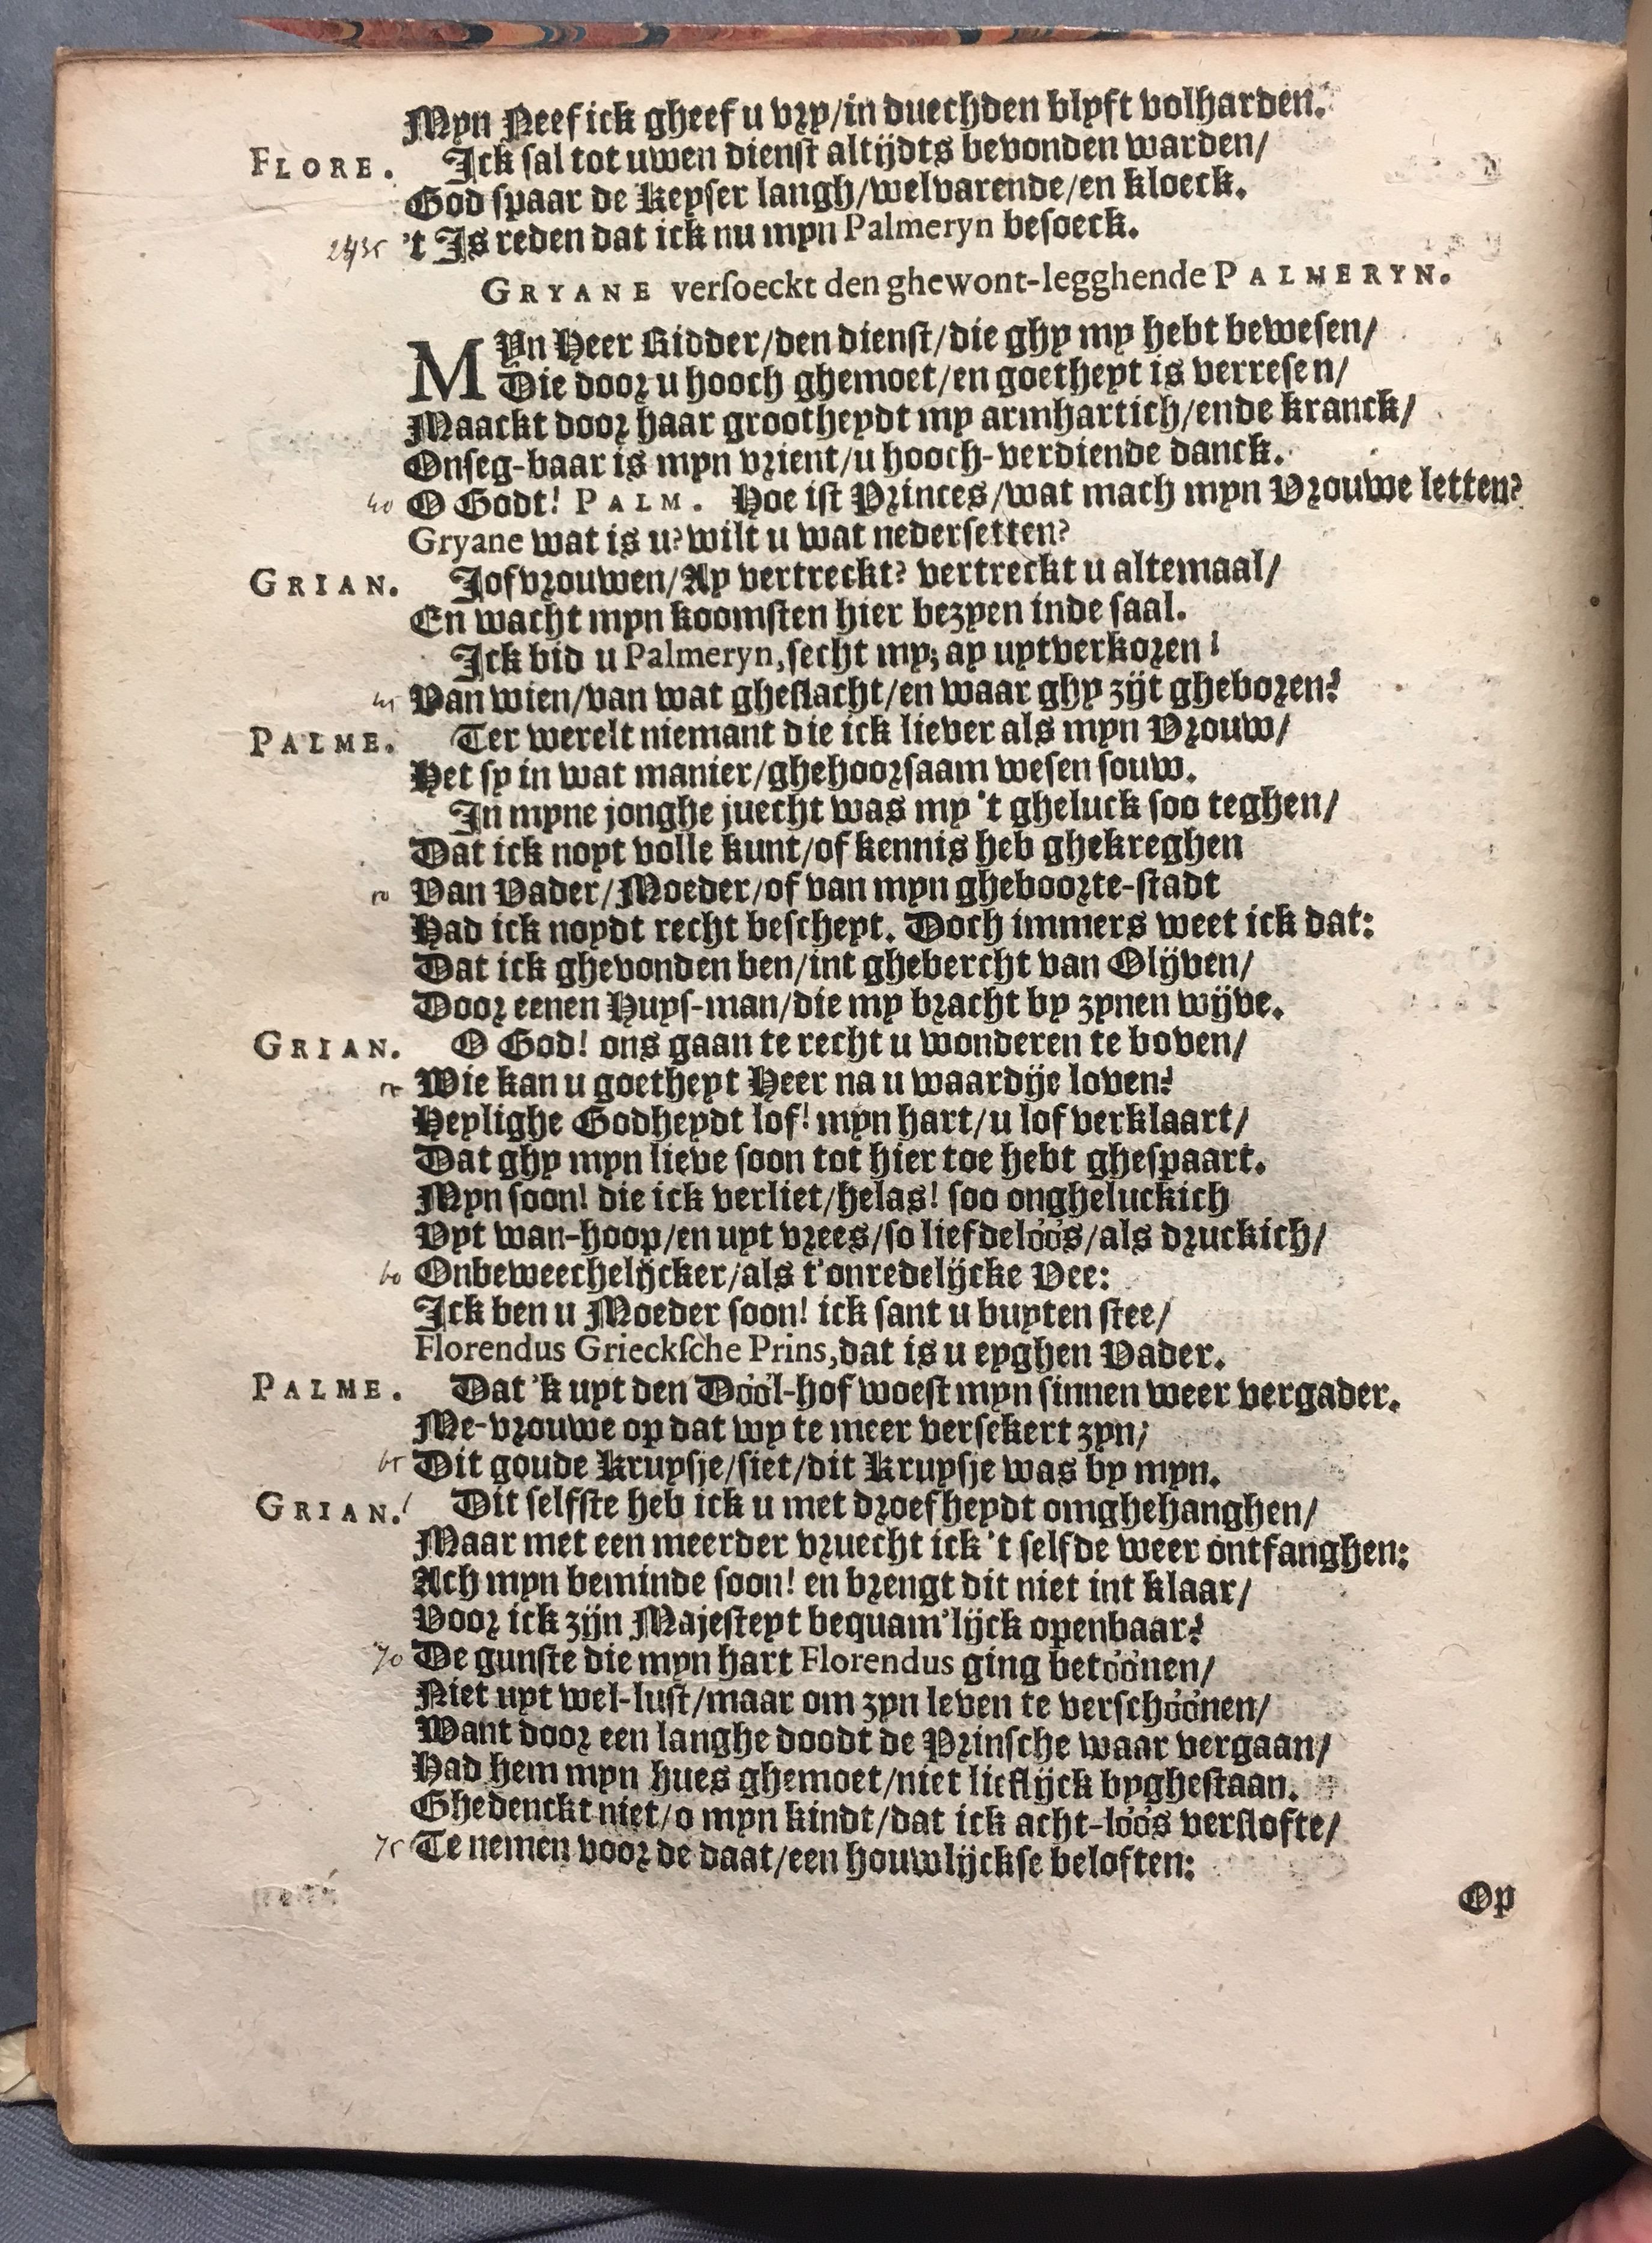 Myn Neef ick gheef u vry/in duechden blyft volharden.
FLORE. Ick sal tot uwen dienst altijdts bevonden warden/
God spaar de Keyser langh/welvarende/en kloeck.
2435 't Is reden dat ick nu myn Palmeryn besoeck.
GRYANE versoeckt den ghewont-legghende PALMERYN.
MYn Heer Ridder/den dienst/die ghy my hebt bewesen/
Die door u hooch ghemoet/en goetheyt is verresen/
Maackt door haar grootheydt my armhartich/ende kranck/
Onseg-baar is myn vrient/u hooch-verdiende danck.
40 O Godt! PALM. Hoe ist Princes/wat mach myn Vrouwe letten?
Gryane wat is u? wilt u wat nedersetten?
GRIAN. Jofvrouwen/Ay vertreckt? vertreckt u altemaal/
En wacht myn koomsten hier bezyen inde saal.
Ick bid u Palmeryn, secht my; ay uytverkoren!
45 Van wien/van wat gheslacht/en waar ghy zijt gheboren?
PALME. Ter werelt niemant die ick liever als myn Vrouw/
Het sy in wat manier/ghehoorsaam wesen souw.
In myne jonghe juecht was my 't gheluck soo teghen/
Dat ick noyt volle kunt/of kennis heb ghekreghen
50 Van Vader/Moeder/of van myn gheboorte-stadt
Had ick noydt recht bescheyt. Doch immers weet ick dat:
Dat ick ghevonden ben/int ghebercht van Olijven/
Door eenen Huys-man/die my bracht by zynen wijve.
GRIAN. O God! ons gaan te recht u wonderen te boven/
55 Wie kan u goetheyt Heer na u waardije loven?
Heylighe Godheydt lof! myn hart/u lof verklaart/
Dat ghy myn lieve soon tot hier toe hebt ghespaart.
Myn soon! die ick verliet/helas! soo ongheluckich
Uyt wan-hoop/en uyt vrees/so liefdelóós/als druckich/
60 Onbeweechelijcker/als t'onredelijcke Vee:
Ick ben u Moeder soon! ick sant u buyten stee/
Florendus Grieckſche Prins, dat is u eyghen Vader.
PALME. Dat 'k uyt den Dóól-hof woest myn sinnen weer vergader.
Me-vrouwe op dat wy te meer versekert zyn;
65 Dit goude Kruysje/siet/dit Kruysje was by myn.
GRIAN. Dit selfste heb ick u met droefheydt omghehanghen/
Maar met een meerder vruecht ick 't selfde weer ontfanghen:
Ach myn beminde soon! en brengt dit niet int klaar/
Voor ick zijn Majesteyt bequam'lijck openbaar?
70 De gunste die myn hart Florendus ging betóónen/
Niet uyt wel-lust/maar om zyn leven te verschóónen/
Want door een langhe doodt de Prinsche waar vergaan/
Had hem myn hues ghemoet/niet lieflijck byghestaan.
Ghedenckt niet/o myn kindt/dat ick acht-lóós verslofte/
75 Te nemen voor de daat/een houwlijckse beloften:
Op